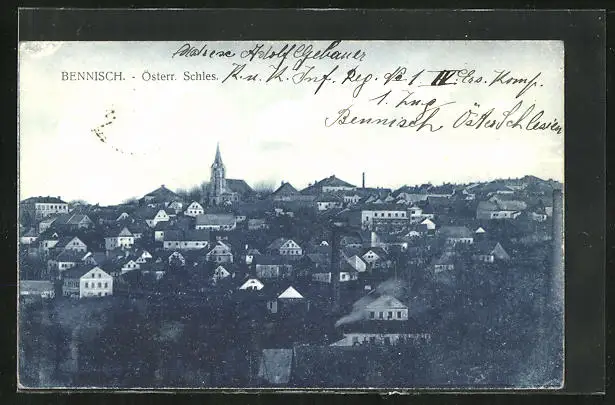 Adresse Adolf Gebauer
BENNISCH. - Österr. Schles.
K. u. K. Inf. Reg. No 1 IV Ers. Komp.
1. Zug
Bennisch Öster Schlesien